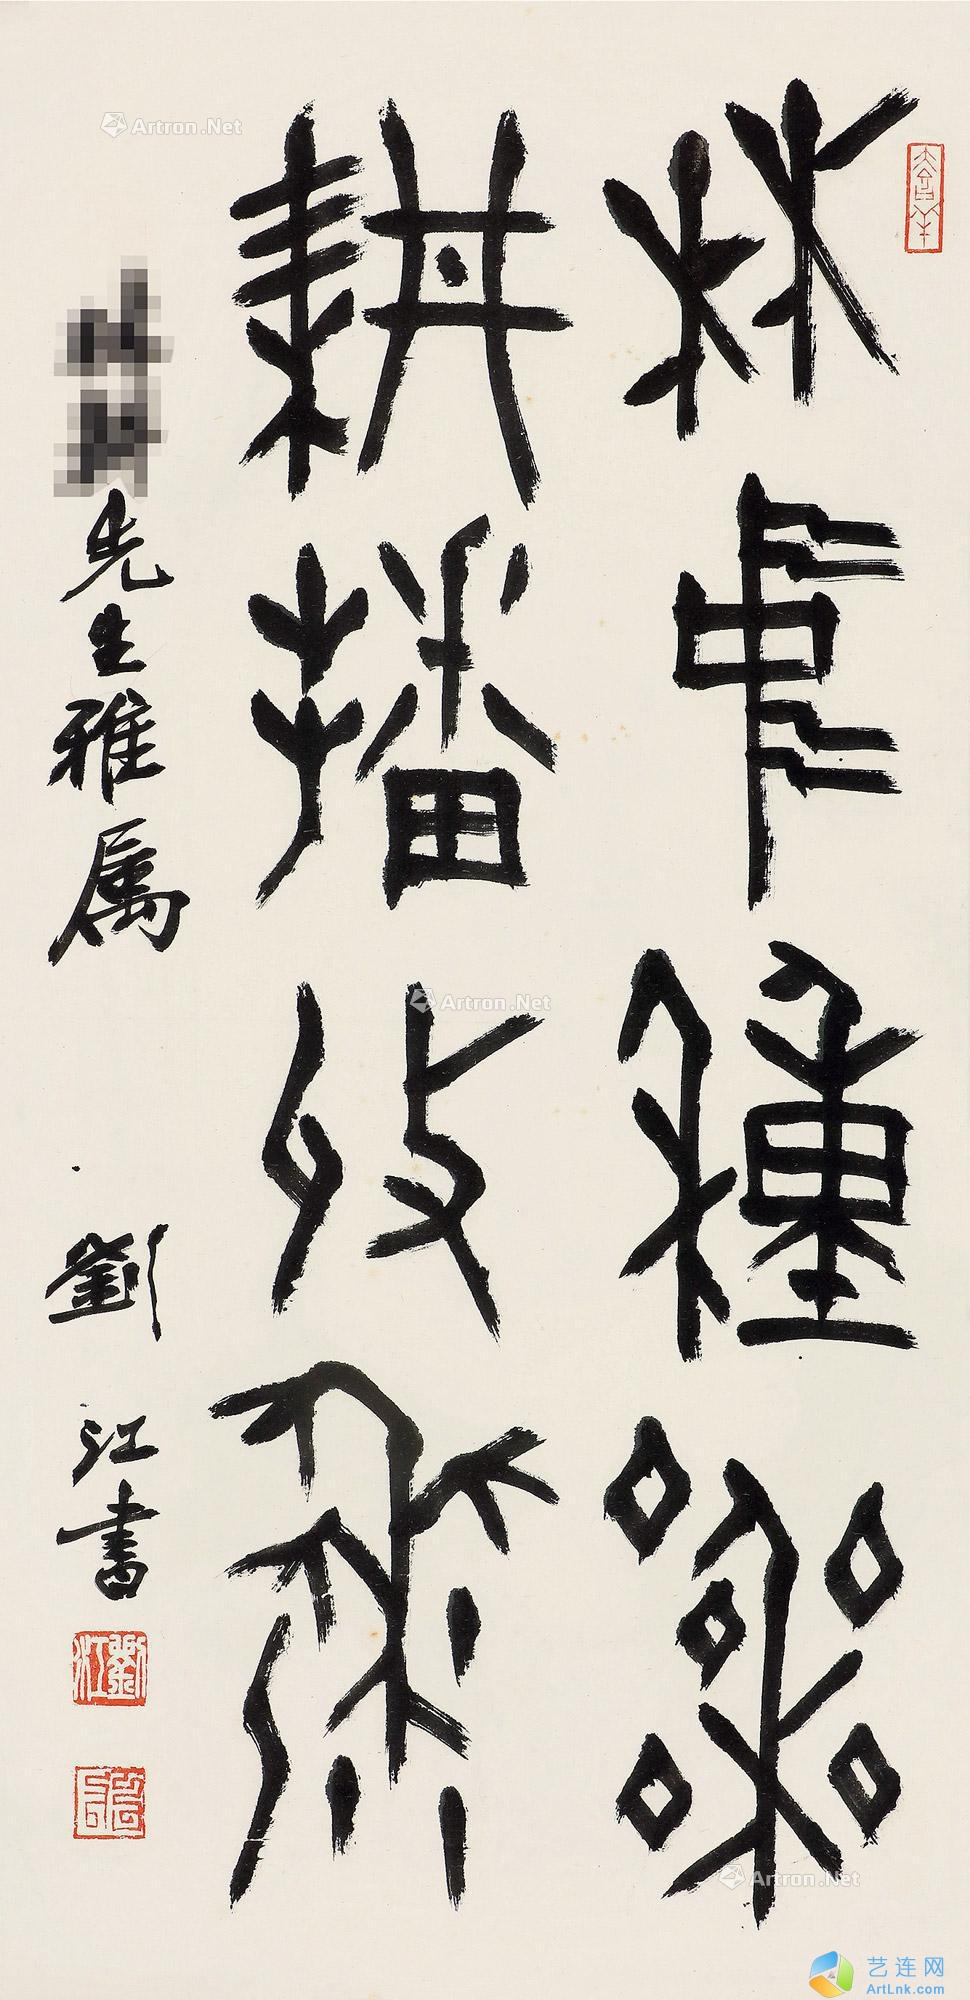 林中種粟
耕播收
先生雅属
劉江書
劉江
Artron.Net
Artron.Net
Artron.Net
艺连网
ArtLnk.com